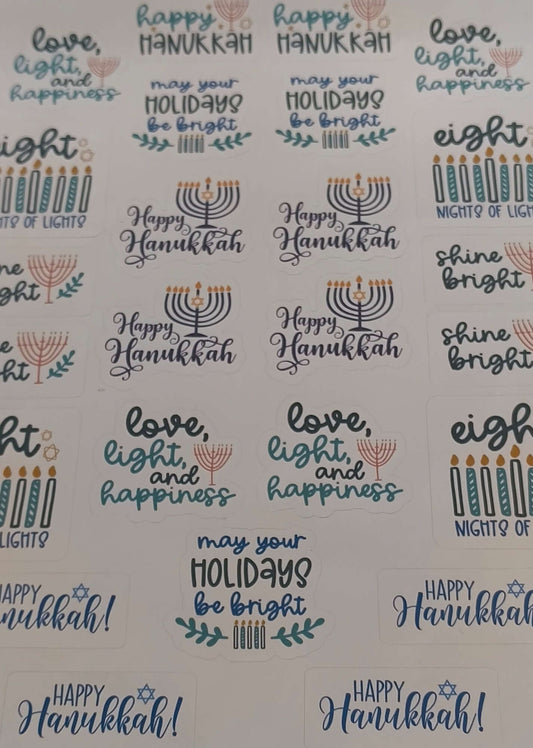 happy
HANUKKAH
happy
HANUKKAH
love,
light,
and
happiness
love,
light,
and
happiness
may your
HOLIDAYS
be bright
may your
HOLIDAYS
be bright
eight
NIGHTS OF LIGHTS
eight
NIGHTS OF LIGH
Happy
Hanukkah
Happy
Hanukkah
ne
ght
shine
bright
Happy
Hanukkah
Happy
Hanukkah
ne
ht
shine
bright
love,
light,
and
happiness
love,
light,
and
happiness
ht
LIGHTS
eigh
NIGHTS OF
may your
HOLIDAYS
be bright
HAPPY
anukkah!
HAPPY
Hanukkah
HAPPY
Hanukkah!
HAPPY
Hanukkah!